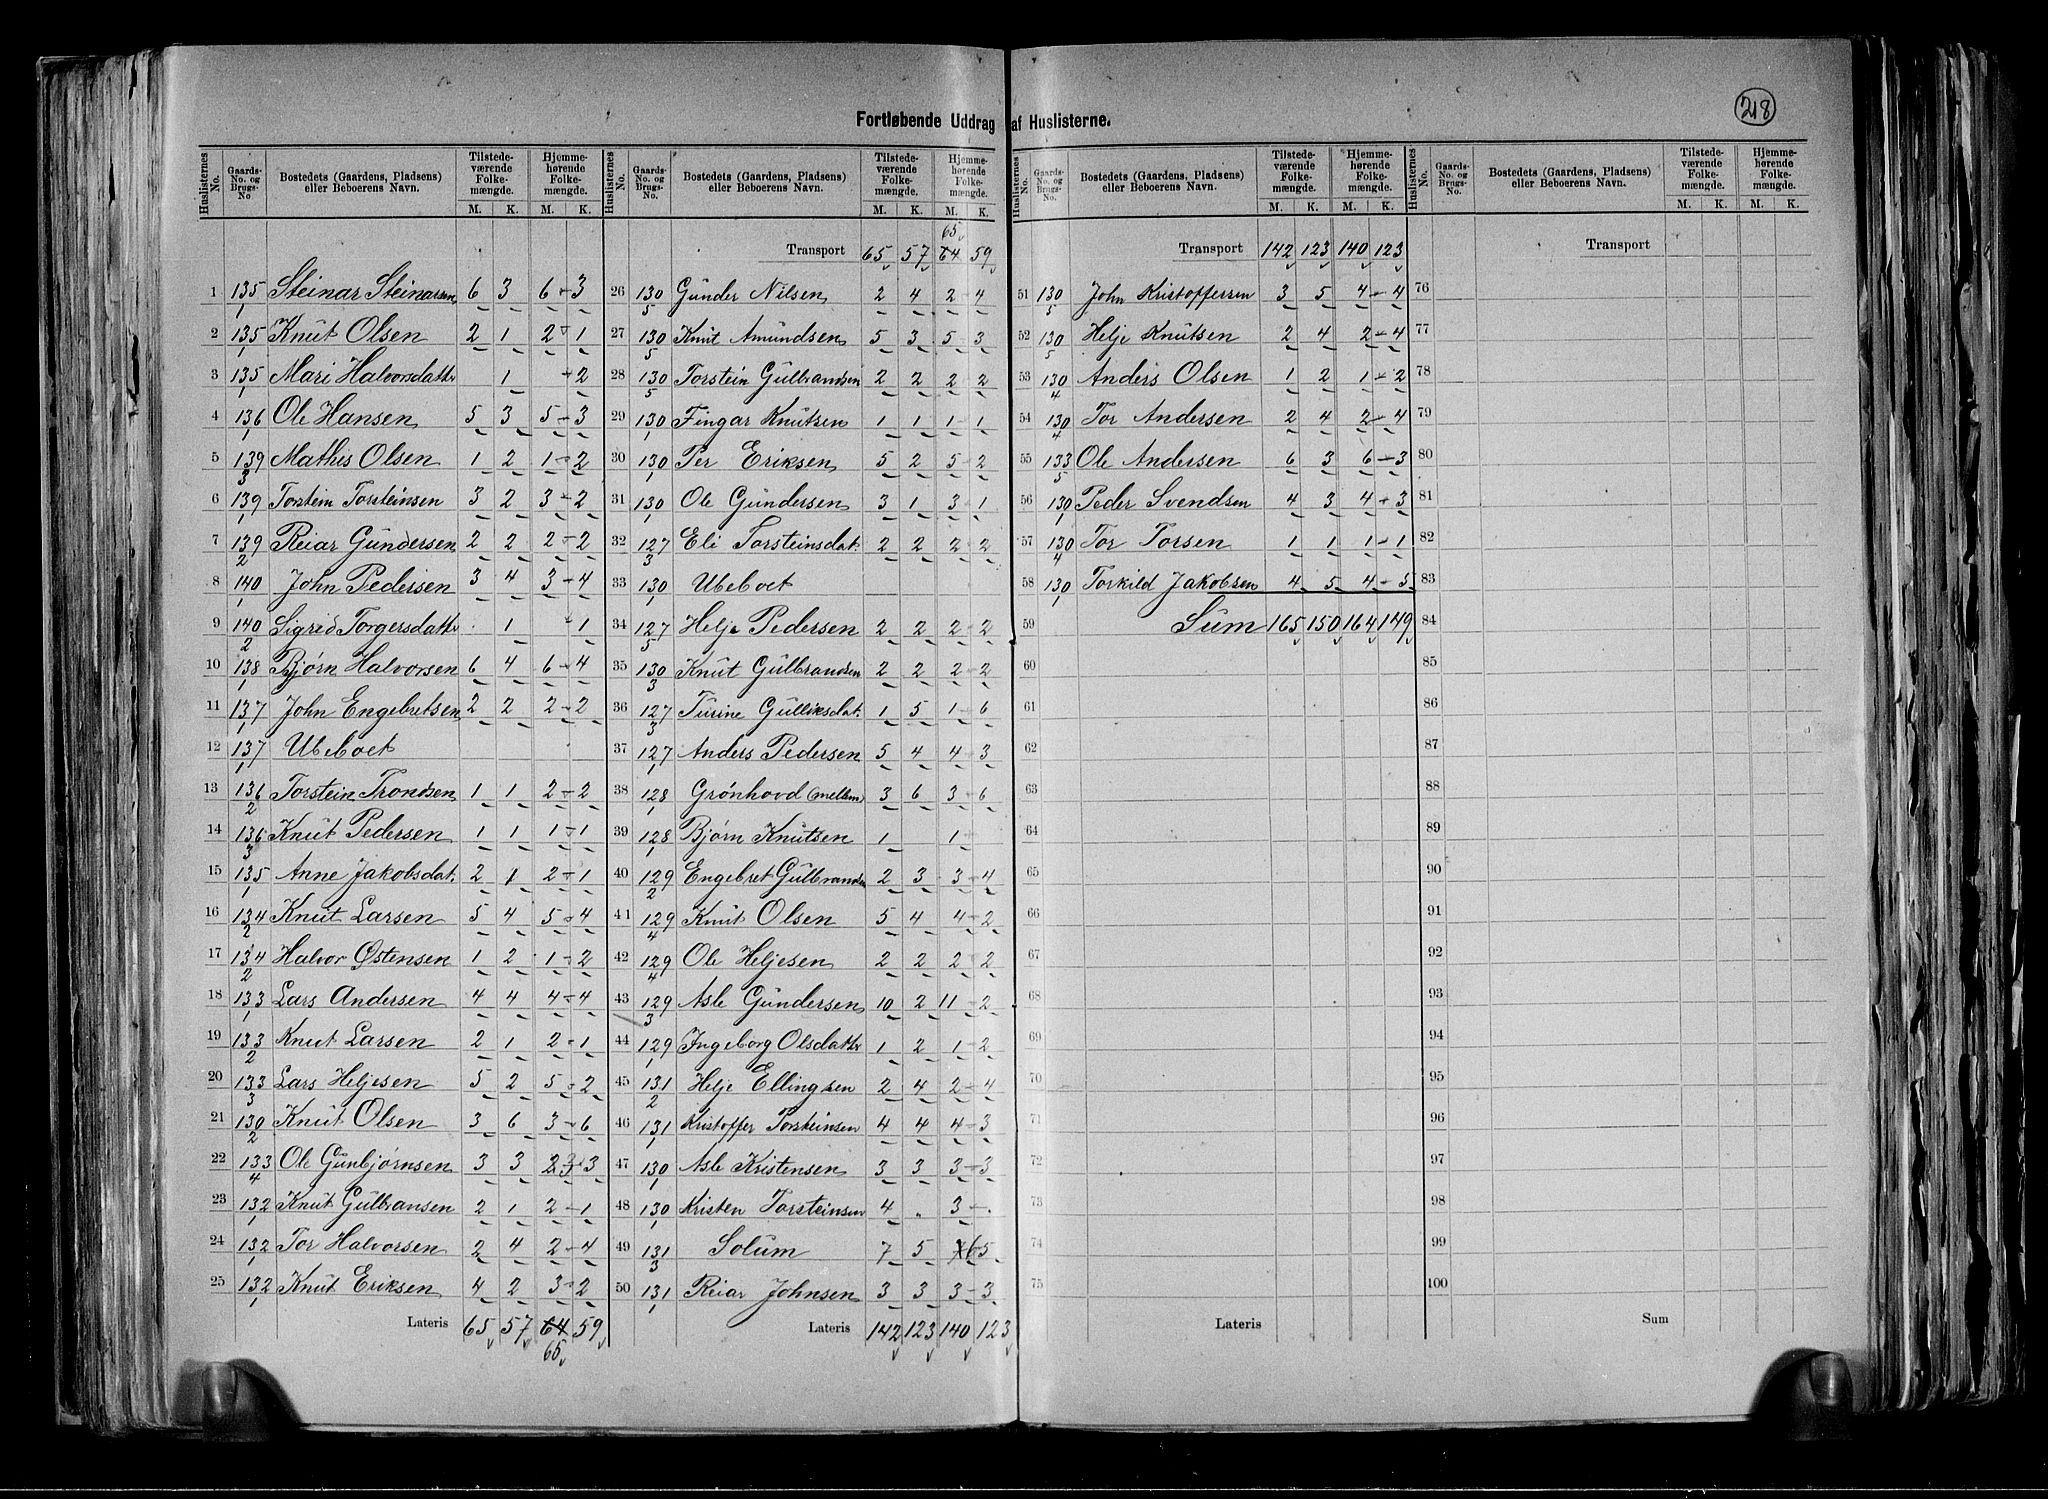 218
Fortløbende Uddrag af Huslisterne.
Huslisternes No. | Gaards-No. og Brugs-No | Bostedets (Gaardens, Pladsens) eller Beboerens Navn. | Tilstedeværende Folkemængde. M. K. | Hjemmehørende Folkemængde. M. K.
1 135/1 Steinar Steinarsen 6 3 6 - 3
2 135/1 Knut Olsen 2 1 2 - 1
3 135/1 Mari Halvorsdatter 1 - 2
4 136/1 Ole Hansen 5 3 5 - 3
5 139/3 Mathis Olsen 1 2 1 - 2
6 139/1 Torstein Torsteinsen 3 2 3 - 2
7 139/2 Reiar Gundersen 2 2 2 - 2
8 140/1 John Pedersen 3 4 3 - 4
9 140/2 Sigrid Torgersdatter 1 - 1
10 138/1 Bjørn Halvorsen 6 4 6 - 4
11 137/1 John Engebretsen 2 2 2 - 2
12 137/1 Ubeboet
13 136/2 Torstein Trondsen 1 1 2 - 2
14 136/3 Knut Pedersen 1 1 1 - 1
15 135/1 Anne Jakobsdat. 2 1 2 - 1
16 134/2 Knut Larsen 5 4 5 - 4
17 134/2 Halvor Østensen 1 2 1 - 2
18 133/1 Lars Andersen 4 4 4 - 4
19 133/2 Knut Larsen 2 1 2 - 1
20 133/3 Lars Heljesen 5 2 5 - 2
21 130/2 Knut Olsen 3 6 3 - 6
22 133/4 Ole Gunbjørnsen 3 3 2 3 - 3
23 132/1 Knut Gulbransen 2 1 2 - 1
24 132/1 Tor Halvorsen 2 4 2 - 4
25 132/1 Knut Eriksen 4 2 3 - 2
Lateris 65 57 64 59
65
65
Transport 65 57 64 59
26 130/5 Gunder Nilsen 2 4 2 - 4
27 130/5 Knut Amundsen 5 3 5 - 3
28 130/5 Torstein Gulbrandsen 2 2 2 - 2
29 130/1 Fingar Knutsen 1 1 1 - 1
30 130/1 Per Eriksen 5 2 5 - 2
31 130/1 Ole Gundersen 3 1 3 - 1
32 127/3 Eli Torsteinsdat. 2 2 2 - 2
33 130/1 Ubeboet
34 127/5 Helje Pedersen 2 2 2 - 2
35 130/3 Knut Gulbrandsen 2 2 2 - 2
36 127/3 Turine Gulliksdat. 1 5 1 - 6
37 127/1 Anders Pedersen 5 4 4 - 3
38 128/1 Grønhovd (mellem) 3 6 3 - 6
39 128/1 Bjørn Knutsen 1 1
40 129/2 Engebret Gulbrandsen 2 3 3 - 4
41 129/4 Knut Olsen 5 4 4 - 2
42 129/4 Ole Heljesen 2 2 2 - 2
43 129/3 Asle Gundersen 10 2 11 - 2
44 129/1 Ingeborg Olsdatter 1 2 1 - 2
45 131/2 Helje Ellingsen 2 4 2 - 4
46 131/1 Kristoffer Torsteinsen 4 4 4 - 3
47 130/1 Asle Kristensen 3 3 3 - 3
48 130/1 Kristen Torsteinsen 4 „ 3 -
49 131/3 Solum 7 5 6 5
50 131/1 Reiar Johnsen 3 3 3 - 3
Lateris 142 123 140 123
Transport 142 123 140 123
51 130/5 John Kristoffersen 3 5 4 - 4
52 130/5 Helje Knutsen 2 4 2 - 4
53 130/4 Anders Olsen 1 2 1 - 2
54 130/4 Tor Andersen 2 4 2 - 4
55 133/5 Ole Andersen 6 3 6 - 3
56 130/1 Peder Svendsen 4 3 4 - 3
57 130/4 Tor Torsen 1 1 1 - 1
58 130/1 Torkild Jakobsen 4 5 4 - 5
59 Sum 165 150 164 149
60
61
62
63
64
65
66
67
68
69
70
71
72
73
74
75
Lateris
Transport
76
77
78
79
80
81
82
83
84
85
86
87
88
89
90
91
92
93
94
95
96
97
98
99
100
Sum